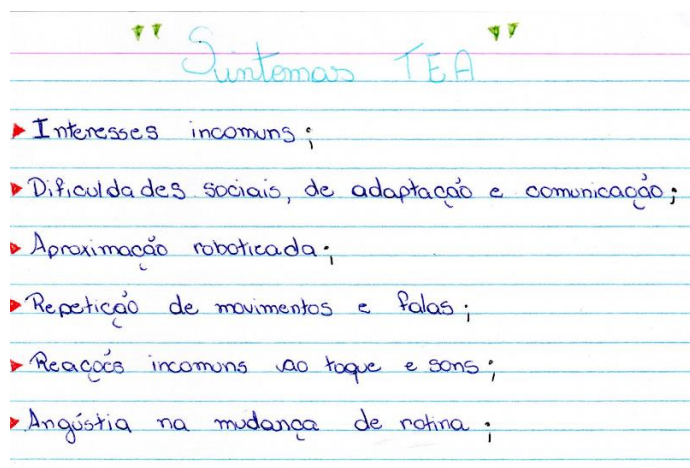 " Suntomas TEA "
▶ Interesses incomuns;
▶ Dificuldades sociais, de adaptação e comunicação;
▶ Aproximação roboticada;
▶ Repetição de movimentos e falas;
▶ Reações incomuns ao toque e sons;
▶ Angústia na mudança de rotina;